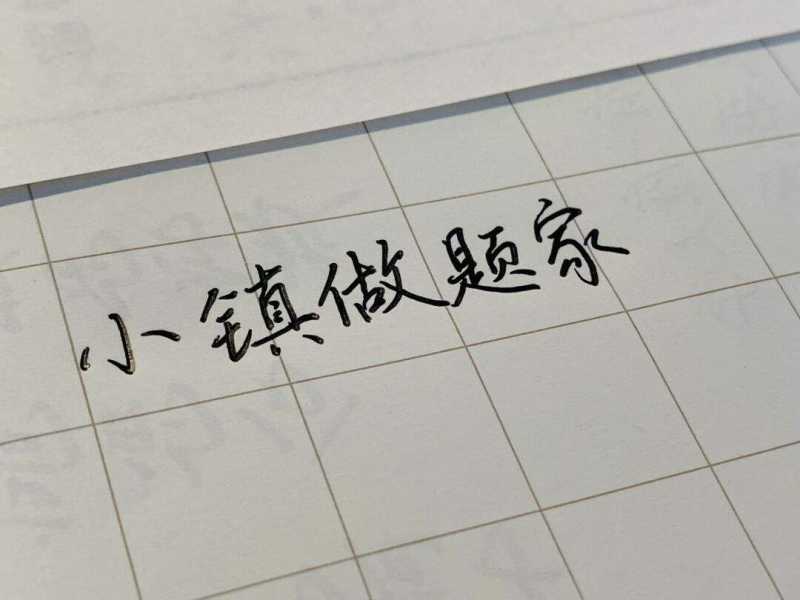 小镇做题家